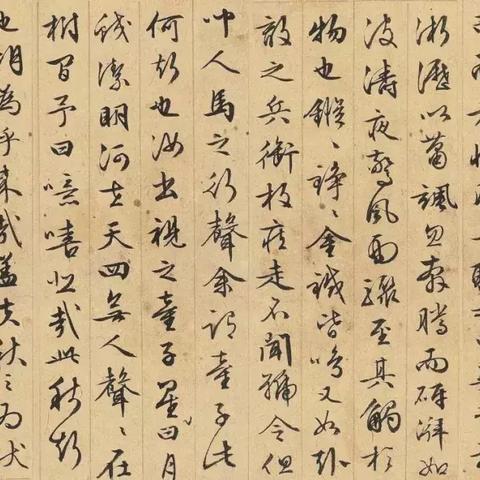 淅瀝以蕭颯忽奔騰而砰湃如
波濤夜驚風雨驟至其觸於
物也鏦〻錚〻金鐵皆鳴又如赴
敵之兵銜枚疾走不聞號令但
人馬之行聲余謂童子此
何聲也汝出視之童子星曰月
皎潔明河在天四無人聲〻在
樹間予曰噫嘻悲哉此秋聲
也胡為乎來哉蓋夫秋之為狀